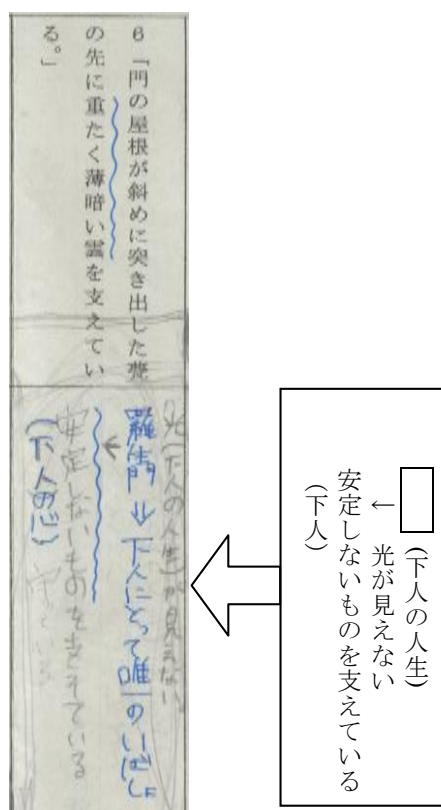 6「門の屋根が斜めに突き出した甍
の先に重たく薄暗い雲を支えてい
る。」
光(下人の人生)が見えない
羅生門⇒下人にとって唯一のいばしょ
↑
安定しないものを支えている
(下人の心)
(下人の人生)
↑ 光が見えない
安定しないものを支えている
(下人)